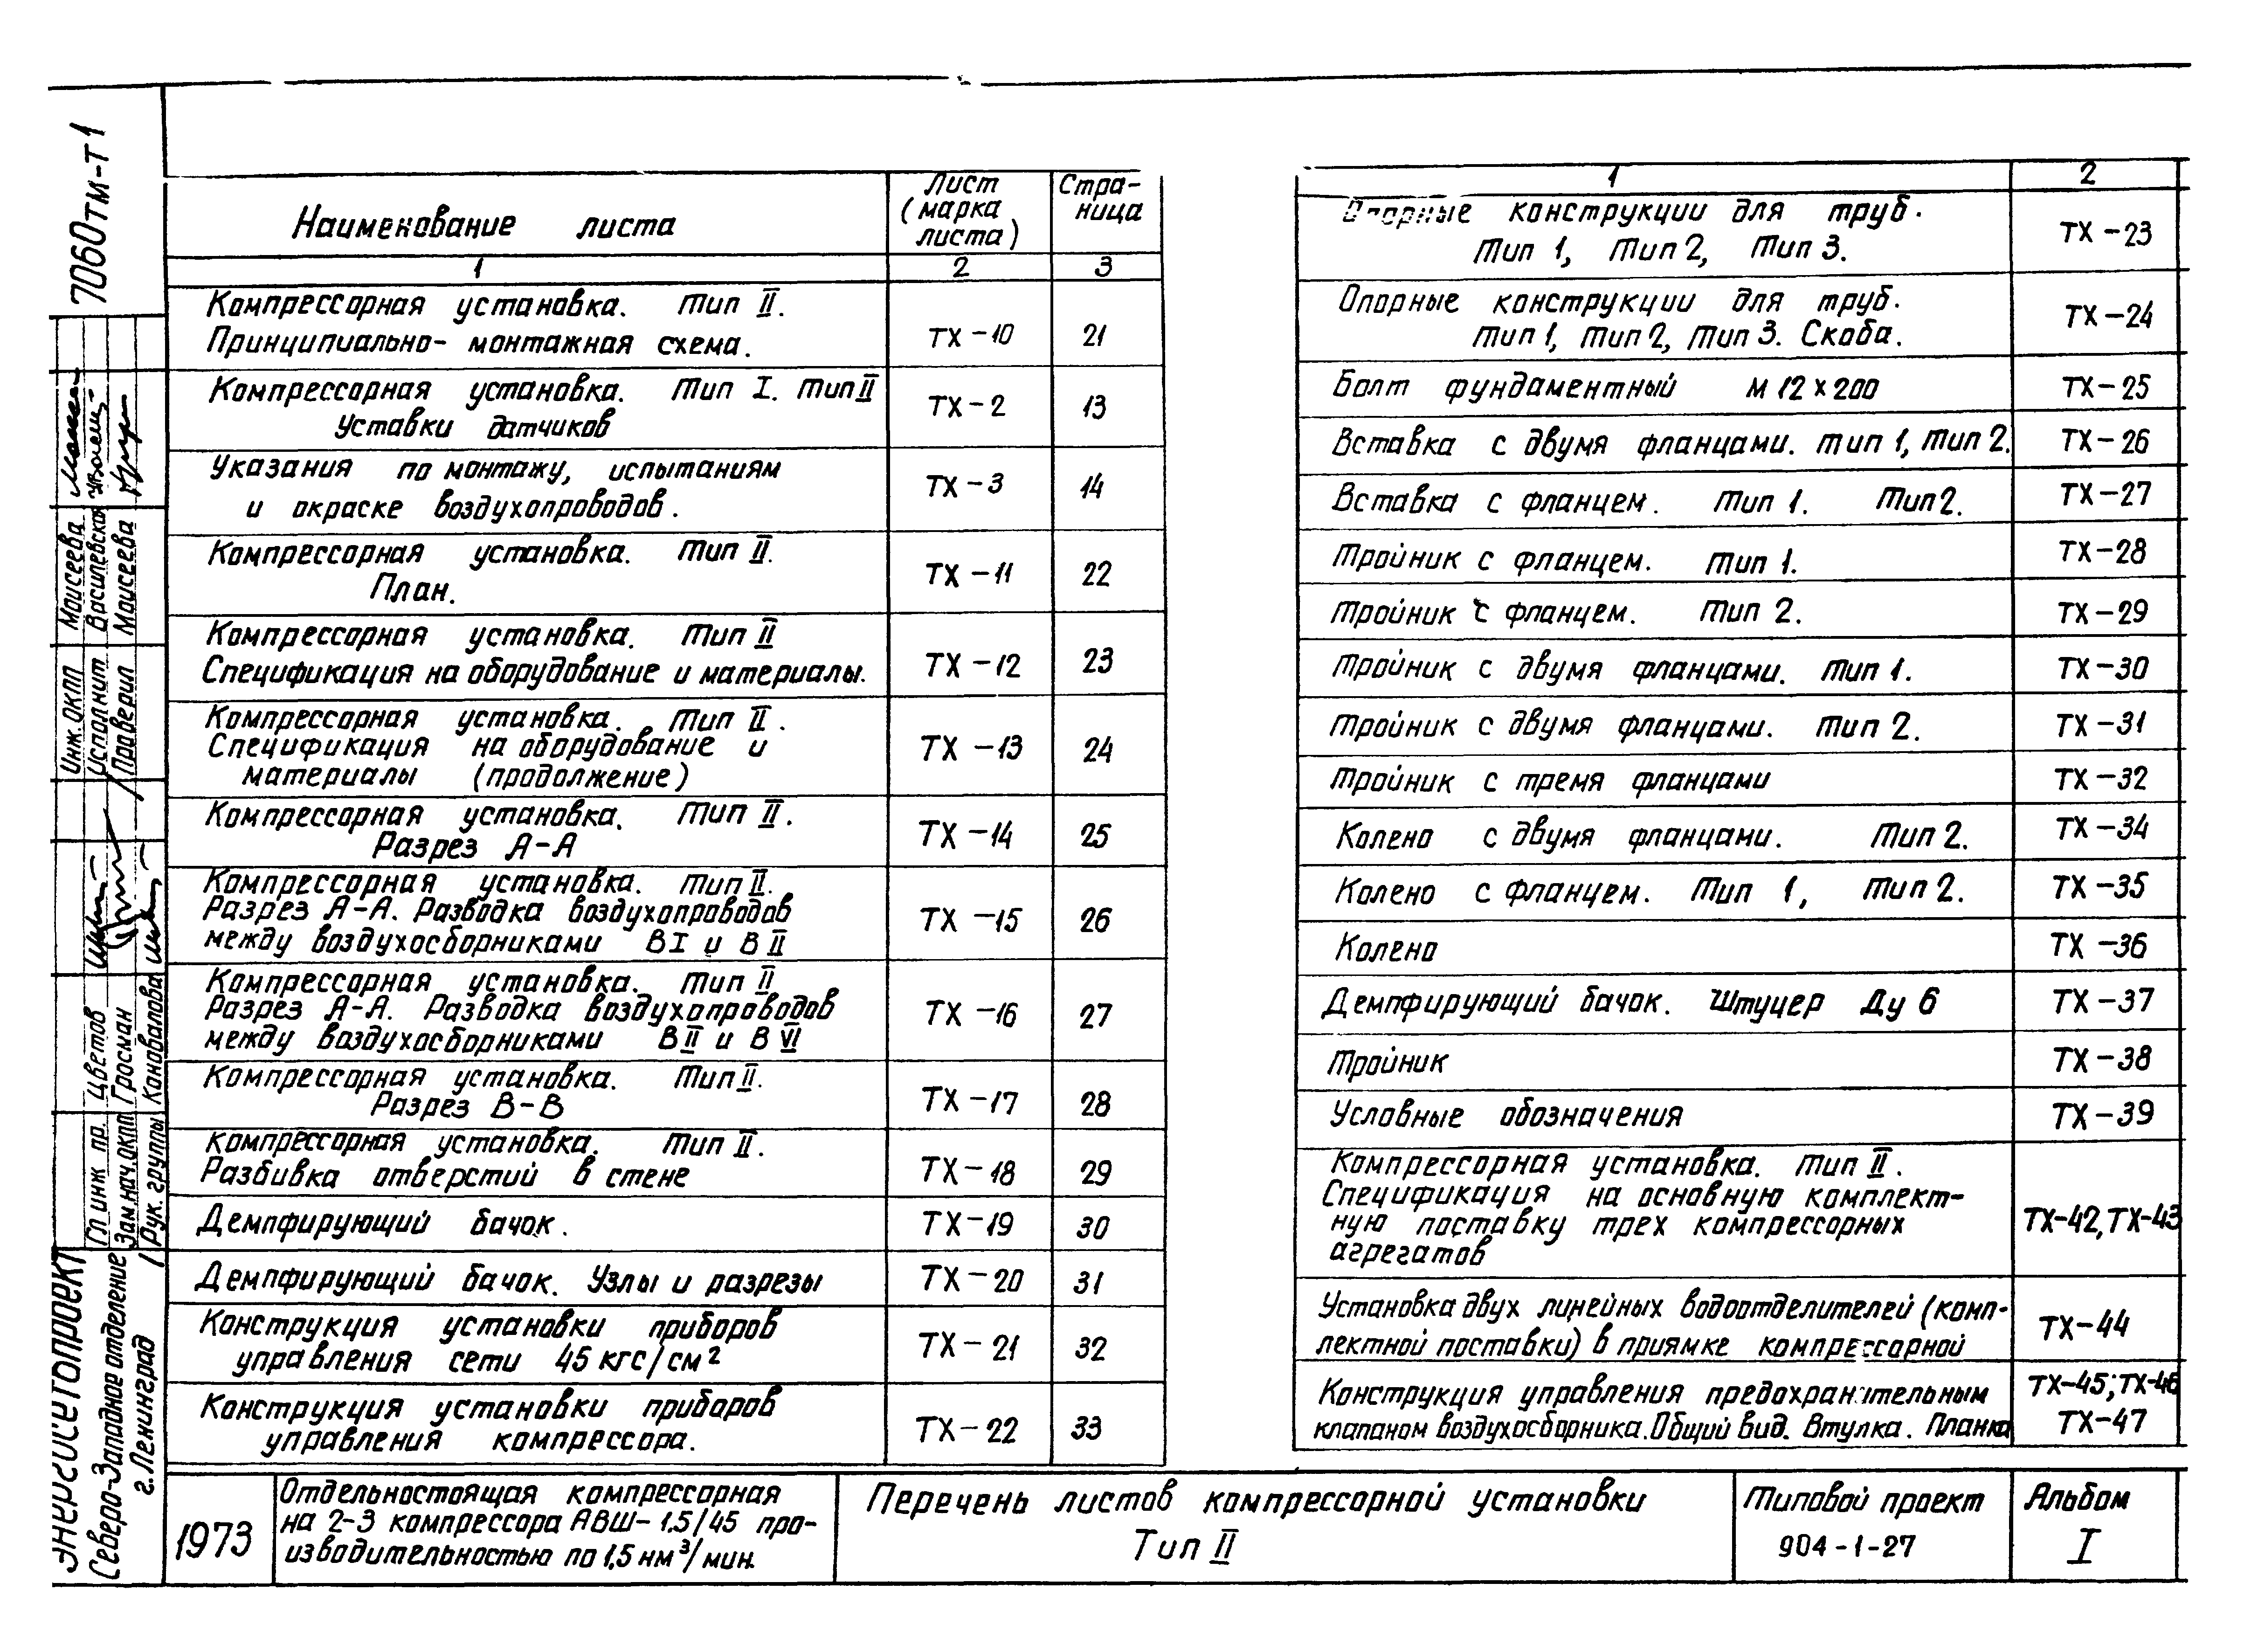 7060тм-т1
Наименование листа
Лист
(марка
листа)
Стра-
ница
1
2
3
Компрессорная установка. Тип II.
Принципиально- монтажная схема.
ТХ-10
21
Компрессорная установка. Тип I. Тип II
Уставки датчиков
ТХ-2
13
Указания по монтажу, испытаниям
и окраске воздухопроводов.
ТХ-3
14
Компрессорная установка. Тип II.
План.
ТХ-11
22
Компрессорная установка. Тип II
Спецификация на оборудование и материалы.
ТХ-12
23
Компрессорная установка. Тип II.
Спецификация на оборудование и
материалы (продолжение)
ТХ-13
24
Компрессорная установка. Тип II.
Разрез А-А
ТХ-14
25
Компрессорная установка. Тип II.
Разрез А-А. Разводка воздухопроводов
между воздухосборниками В I и В II
ТХ-15
26
Компрессорная установка. Тип II
Разрез А-А. Разводка воздухопроводов
между воздухосборниками В II и В VI
ТХ-16
27
Компрессорная установка. Тип II.
Разрез В-В
ТХ-17
28
Компрессорная установка. Тип II.
Разбивка отверстий в стене
ТХ-18
29
Демпфирующий бачок.
ТХ-19
30
Демпфирующий бачок. Узлы и разрезы
ТХ-20
31
Конструкция установки приборов
управления сети 45 кгс/см²
ТХ-21
32
Конструкция установки приборов
управления компрессора.
ТХ-22
33
1
2
Опорные конструкции для труб.
Тип 1, Тип 2, Тип 3.
ТХ-23
Опорные конструкции для труб.
Тип 1, Тип 2, Тип 3. Скоба.
ТХ-24
Болт фундаментный М 12 х 200
ТХ-25
Вставка с двумя фланцами. Тип 1, Тип 2.
ТХ-26
Вставка с фланцем. Тип 1. Тип 2.
ТХ-27
Тройник с фланцем. Тип 1.
ТХ-28
Тройник с фланцем. Тип 2.
ТХ-29
Тройник с двумя фланцами. Тип 1.
ТХ-30
Тройник с двумя фланцами. Тип 2.
ТХ-31
Тройник с тремя фланцами
ТХ-32
Колено с двумя фланцами. Тип 2.
ТХ-34
Колено с фланцем. Тип 1, Тип 2.
ТХ-35
Колено
ТХ-36
Демпфирующий бачок. Штуцер Ду 6
ТХ-37
Тройник
ТХ-38
Условные обозначения
ТХ-39
Компрессорная установка. Тип II.
Спецификация на основную комплект-
ную поставку трех компрессорных
агрегатов
ТХ-42, ТХ-43
Установка двух линейных водоотделителей (комп-
лектной поставки) в приямке компрессорной
ТХ-44
Конструкция управления предохранительным
клапаном воздухосборника. Общий вид. Втулка. Планка
ТХ-45; ТХ-46
ТХ-47
Инж. ОКПП Моисеева
Исполнит Василевская
Проверил Моисеева
Гл инж пр. Цветов
Зам.нач.ОКПП Гросман
Рук. группы Коновалова
Энергосетопроект
Северо-Западное отделение
г. Ленинград
1973
Отдельностоящая компрессорная
на 2-3 компрессора АВШ-1.5/45 про-
изводительностью по 1,5 нм³/мин.
Перечень листов компрессорной установки
Тип II
Типовой проект
904-1-27
Альбом
I